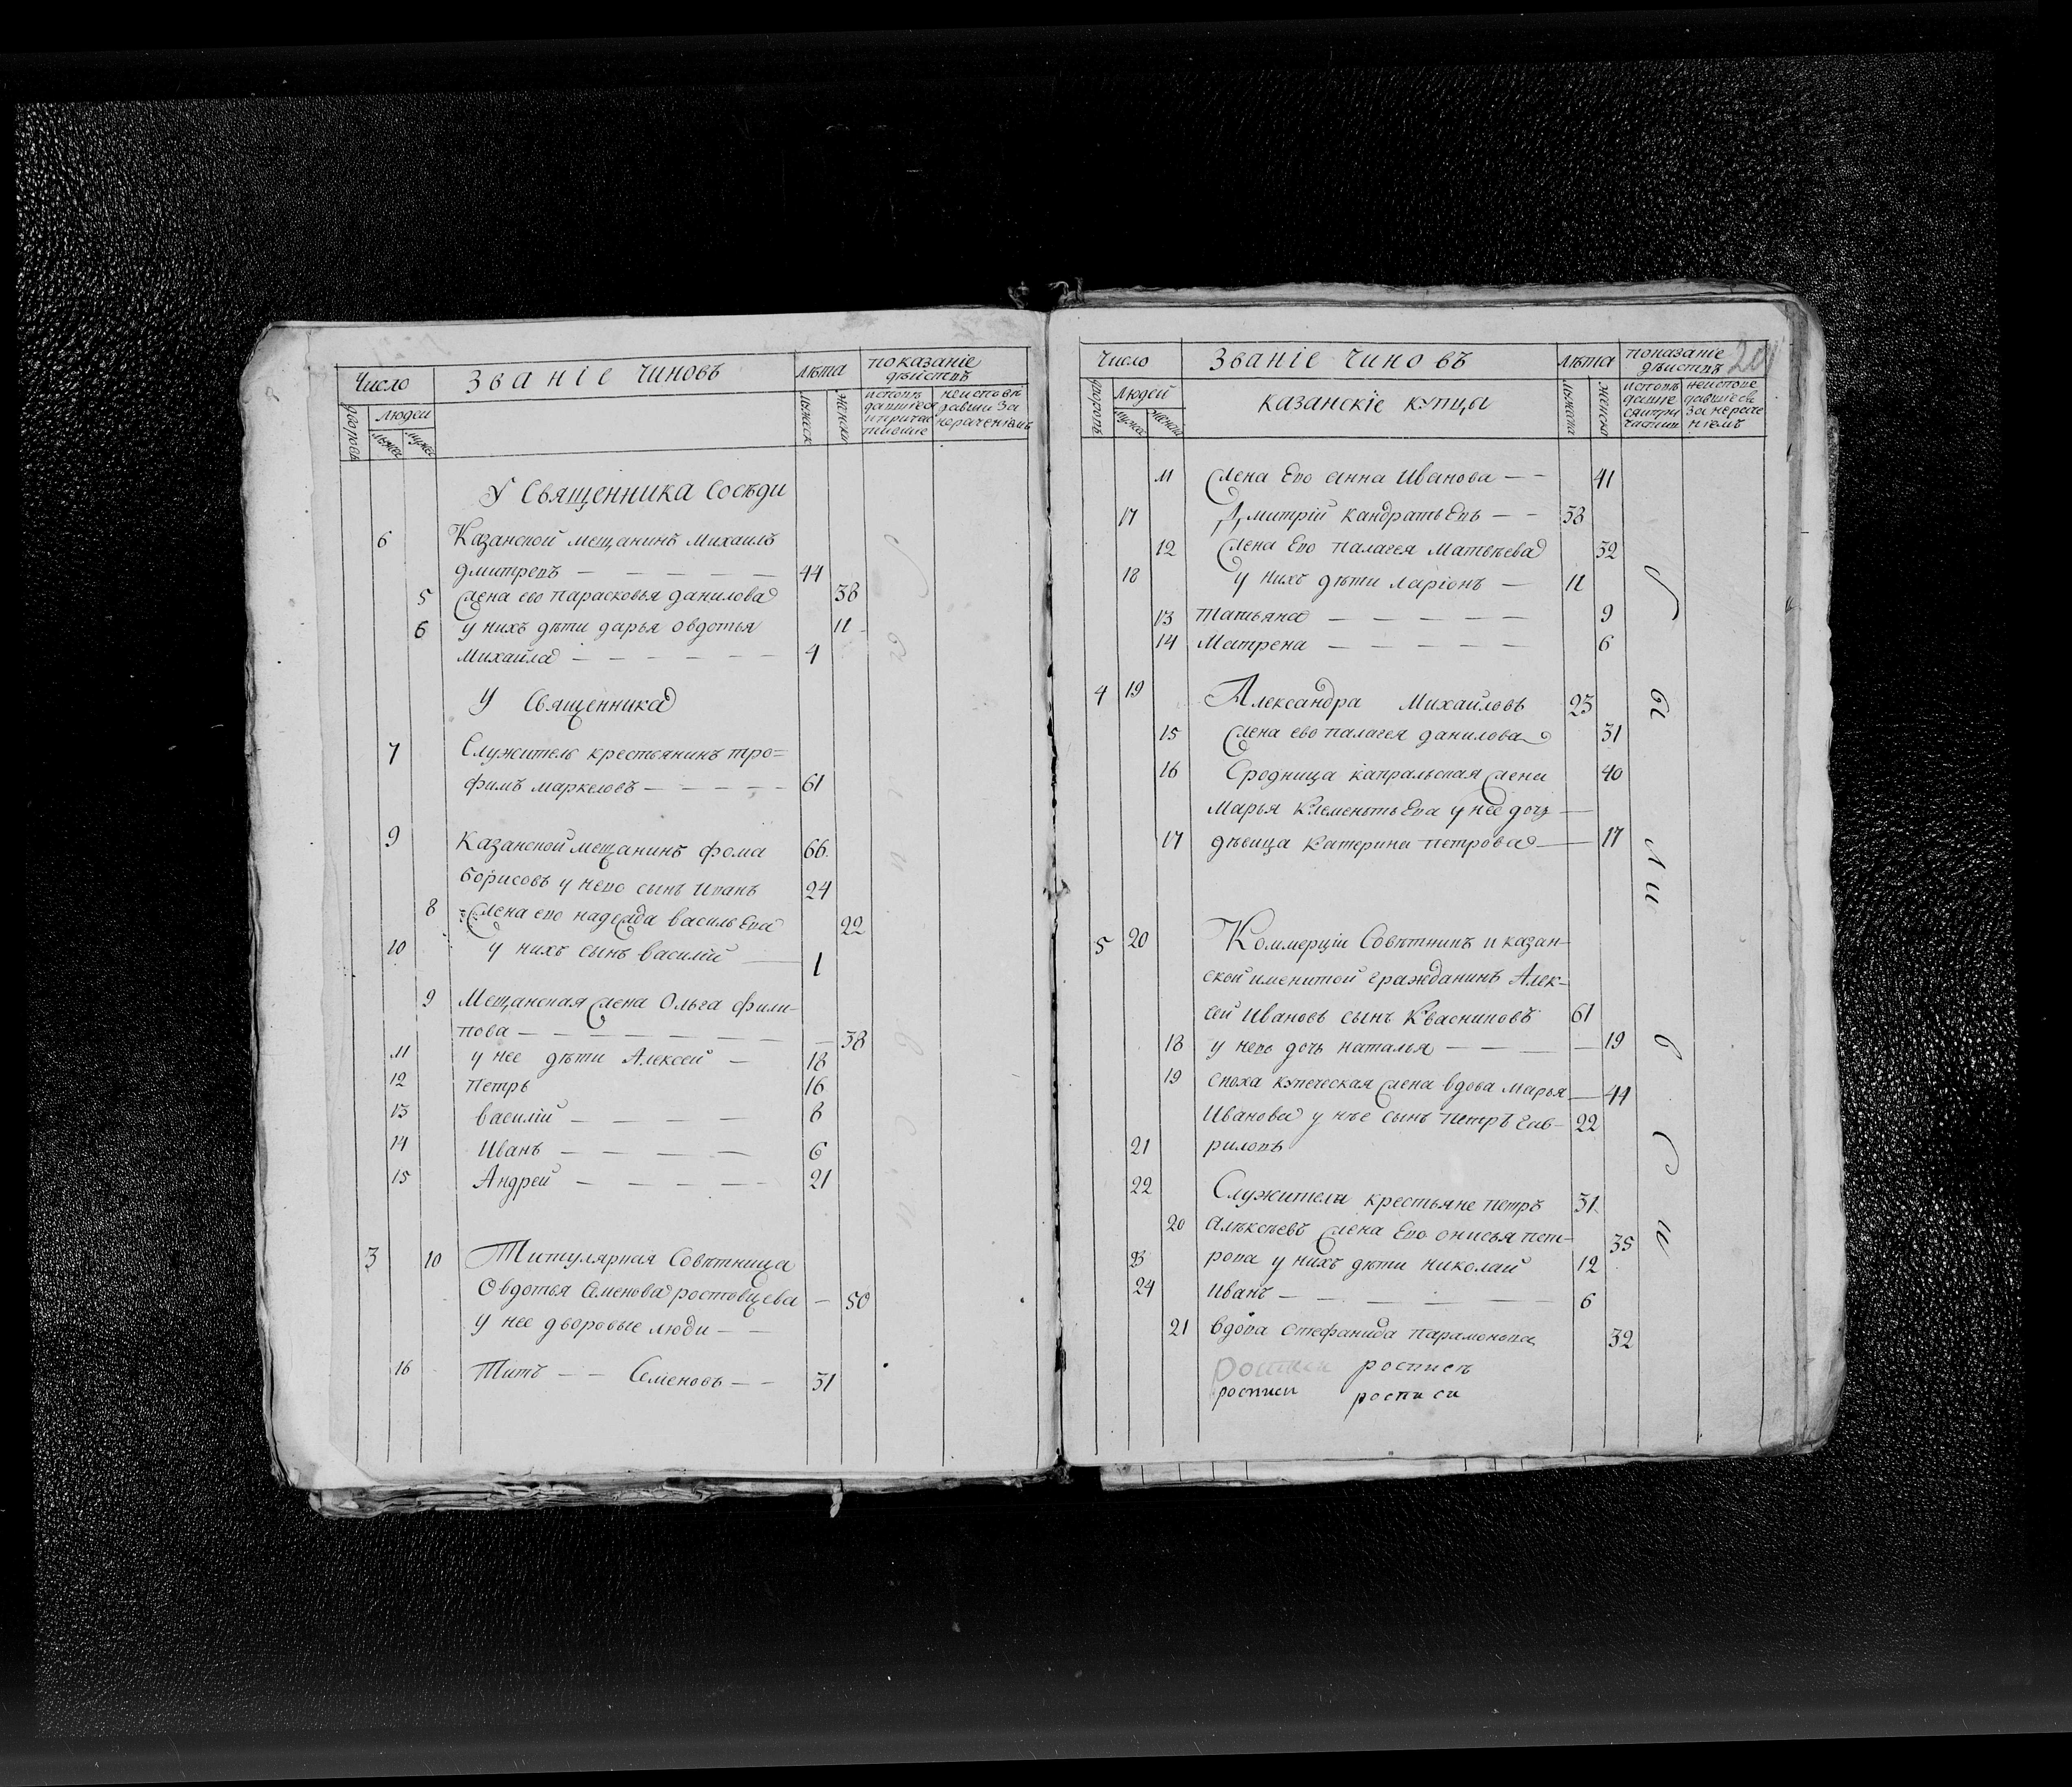 Число Званіе чиновъ Лѣта показаніе дѣйствъ
дворовъ людей мужес женски исповѣ давшіеся и причас тившіе неисповѣ давши за нераченіемъ
У Священника Сосѣди
6 Казанской мещанинъ Михаилъ
дмитревъ — — — — — 44
5 Жена ево парасковья данилова 38
6 у нихъ дѣти дарья овдотья 11
Михайла — — — — — — 4
У Священника
7 Служитель крестьянинъ тро=
фимъ маркеловъ — — — — — 61
9 Казанской мещанинъ фома 66
борисовъ у нево сынъ иванъ 24
8 Жена ево надежда васильева 22
10 у нихъ сынъ василій — 1
9 Мещанская жена Ольга фили-
пова — — — — — — — 38
11 у нее дѣти Алексей — 18
12 петръ 16
13 василій — — — — 8
14 Иванъ — — — — 6
15 Андрей — — — — — 21
3 10 Титулярная Совѣтница
Овдотья Семенова ростовцева — 50
у нее дворовые люди — —
16 Титъ — — Семеновъ — — 31
Число Званіе чиновъ Лѣта показаніе дѣиствъ 20
людей казанскіе купцы исповѣ давшіе ся и при частии неисповѣ давшіесь за нераче ніемъ
11 Жена Ево анна Иванова — — 41
17 Дмитрій кандратьевъ — — 38
12 Жена Ево палагея матвѣева 32
18 у нихъ дѣти ларіонъ — 11
13 татьяна — — — — — 9
14 Матрена — — — — — 6
4 19 Александра Михайловъ 23
15 Жена ево палагея данилова 31
16 Сродница капральская жена 40
марья Клементьева у нее дочь —
17 дѣвица Катерина петрова — 17
5 20 Коммерціи Совѣтникъ и казан-
ской именитой гражданинъ Алек-
сѣй Ивановъ сынъ Квасниковъ 61
18 у нево дочь наталья — — — 19
19 сноха купеческая жена вдова марья — 44
Иванова у нѣе сынъ петръ гав- 22
21 риловъ
22 Служители крестьяне петръ 31
20 алѣксѣевъ жена Ево онисья пет- 35
23 рова у нихъ дѣти николай 12
24 Иванъ — — — — — 6
21 вдова стефанида парамонова 32
росписи росписъ
росписи росписи